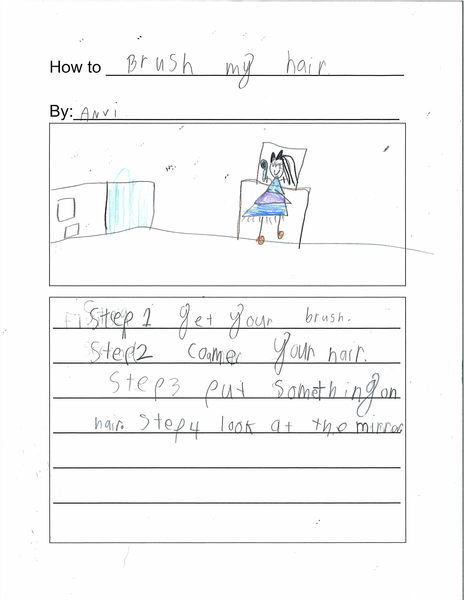 How to Brush my hair
By: Anvi
Step 1 get your brush.
Step2 coamer your hair.
Step3 put something on
hair. Step4 look at the mirror